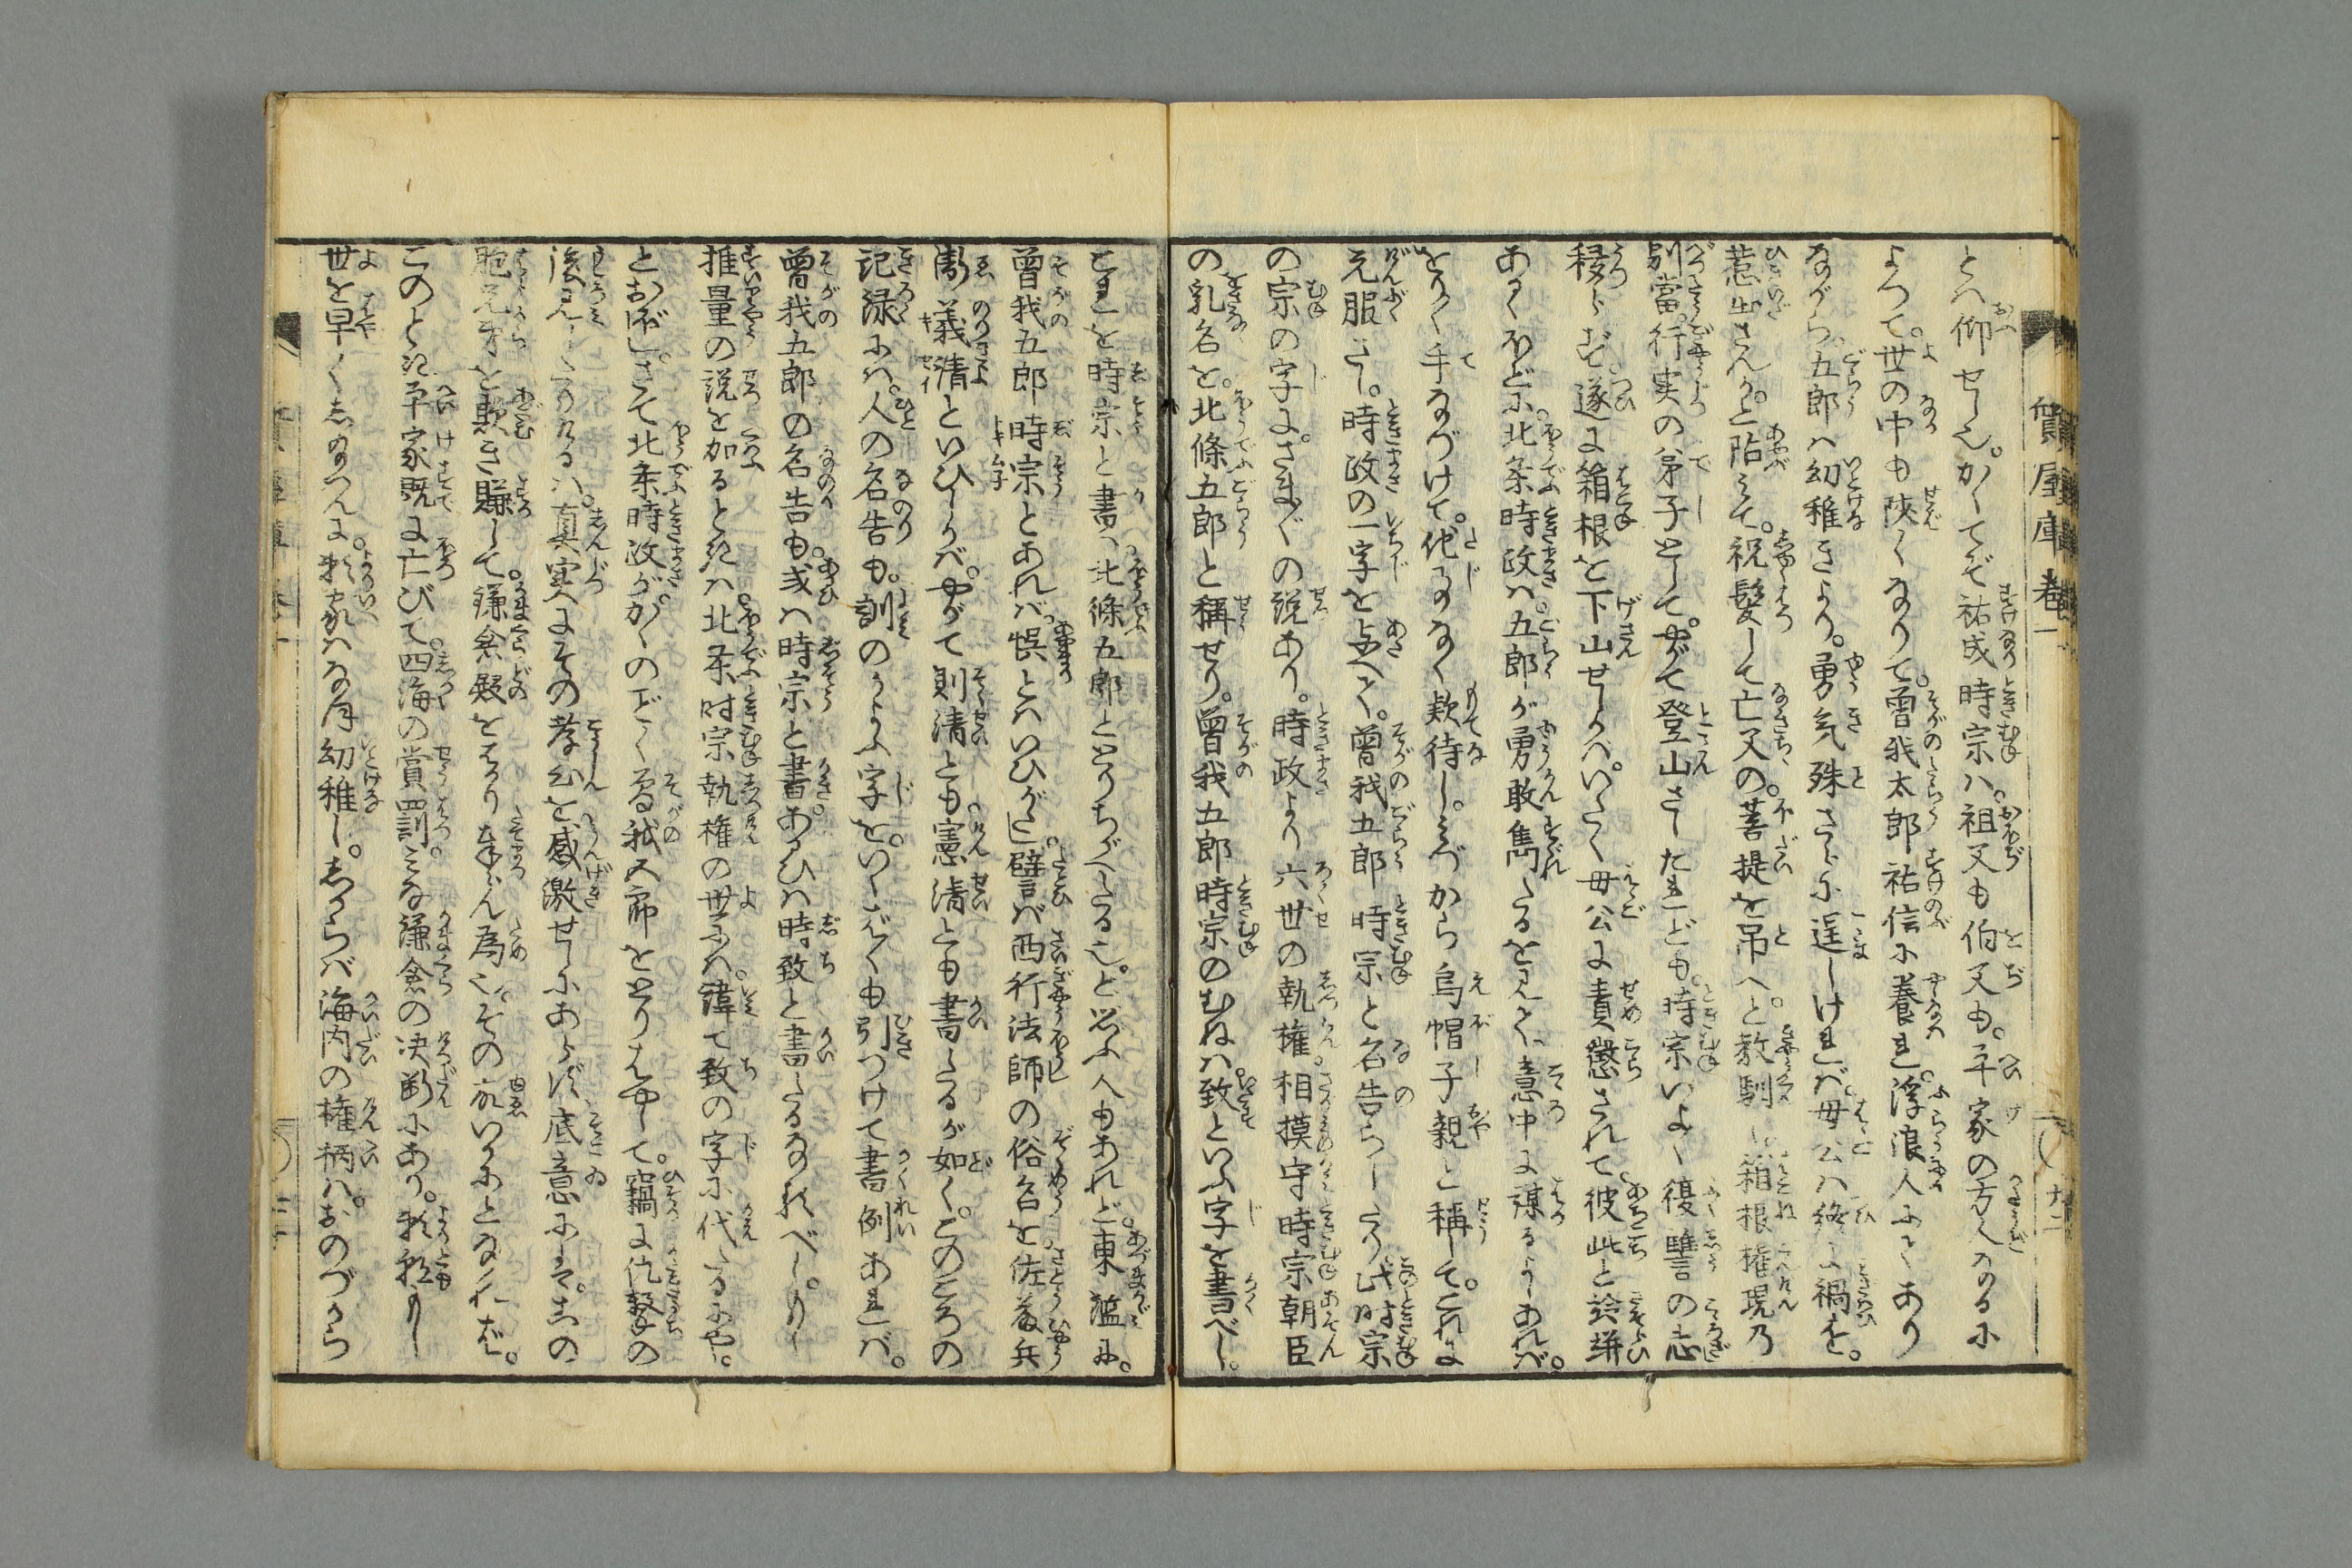 とへ仰せしん。かくてぞ祐成時宗ハ。祖父も伯父も。平家の方人なるに
よつて。世の中も陜くなりて。曽我太郎祐信に養れ。浮浪人にてあり
ながら。五郎ハ幼稚きより。勇気殊さらに逞しけれバ。母公ハ終に禍を。
惹出さんか。と阽みて。祝髪して亡父の。菩提を吊へ。と教馴し。箱根権現乃
別當。行実の弟子として。やがて登山さしたれども。時宗いよ〱復讐の志
移らず。遂に箱根を下山せしかバ。いたく母公に責懲されて。彼此と跉跰
あるくほどに。北条時政ハ。五郎が勇敢雋たるを見て。意中に謀るよしあれバ。
とかく手なづけて。他事なく欵待し。みづから烏帽子親と稱して。これに
元服さし。時政の一字を与へて。曽我五郎時宗と名告らしたり。此時宗
の宗の字に。さま〲の説あり。時政より六世の執権。相摸守時宗朝臣
の乳名を。北條五郎と稱せり。曽我五郎時宗のむねハ。致といふ字を書べし。
これを時宗と書ハ。北條五郎ととりちがへたる也。と思ふ人もあれど。東鑑に。
曽我五郎時宗とあれバ。悞とハいひがたし。譬バ西行法師の俗名を。佐藤兵
衛義清といひしかバ。やがて則清とも憲清とも書たるが如く。このころの
記録にハ。人の名告も。訓のかよふ字を。いくばくも引つけて書例あれバ。
曽我五郎の名告も。或ハ時宗と書。あるひハ時致と書たるなるべし。もし
推量の説を加るときハ。北条时宗執権の世にハ。諱て致の字に代たるにや。
とおぼし。さて北条時政が。がくのごとく曽我五郎をとりはやして。竊に仇撃の
後見したりけるハ。真実にその孝心を感激せしにあらず。底意にハ。その
胞兄弟を欺き賺して。鎌倉殿をはかり奉らん為也。その故いかにとなれば。
このとき平家既に亡びて。四海の賞罰。みな鎌倉の决断にあり。頼朝もし
世を早くしなバ。頼家ハなほ幼稚し。しからバ海内の権柄ハ。おのづから
質屋庫巻一